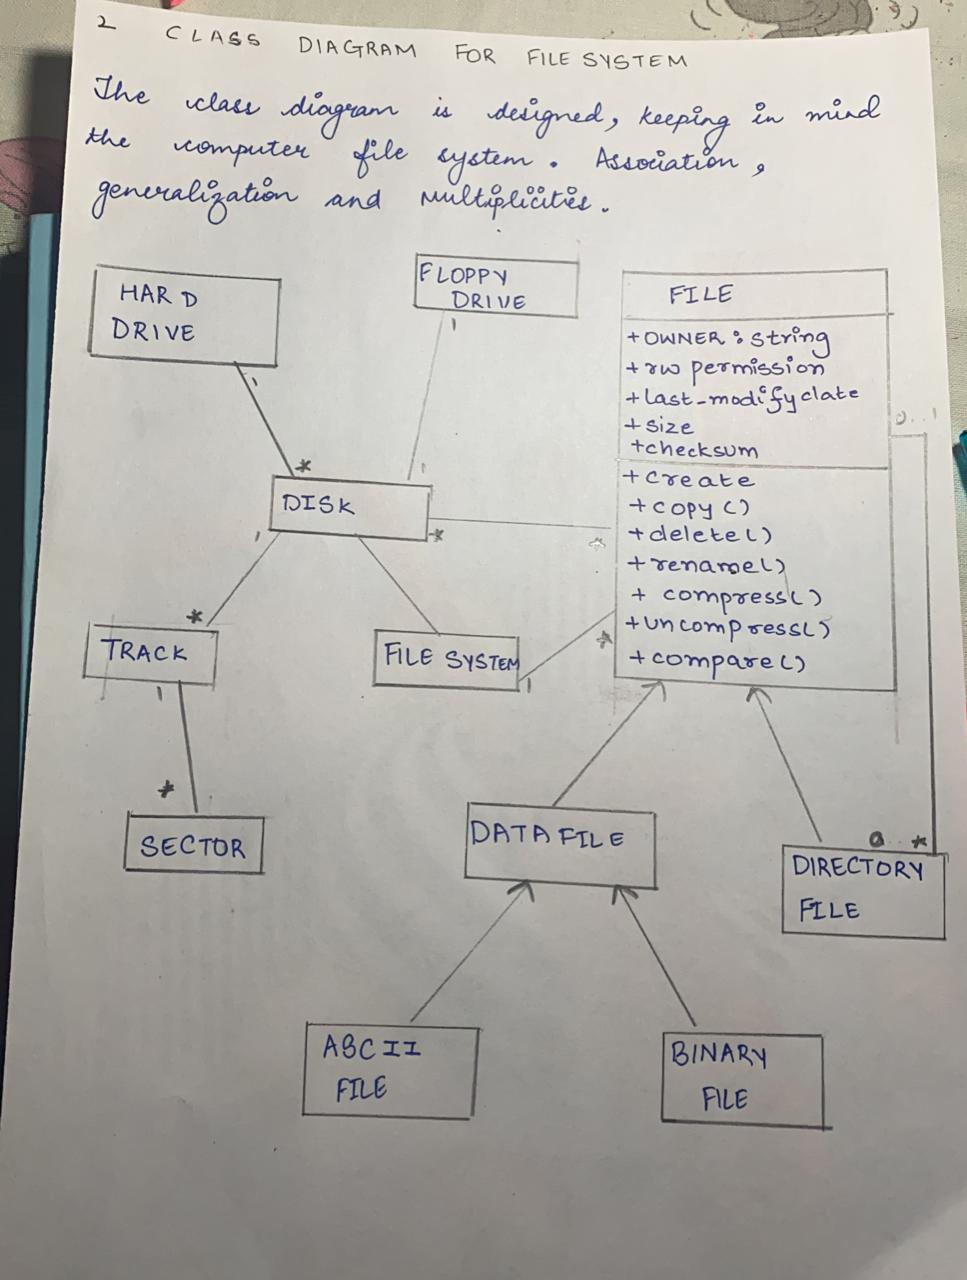 2 CLASS DIAGRAM FOR FILE SYSTEM
The class diagram is designed, keeping in mind
the computer file system. Association,
generalization and multiplicities.
HARD
DRIVE
1
*
FLOPPY
DRIVE
1
1
FILE
+OWNER : string
+rw permission
+last-modifyclate
+size
+checksum
+create
+copy()
+delete()
+rename()
+ compress()
+uncompress()
+compare()
0..1
DISK
*
*
1
*
TRACK
FILE SYSTEM
1
*
1
*
SECTOR
DATA FILE
0..*
DIRECTORY
FILE
ABCII
FILE
BINARY
FILE